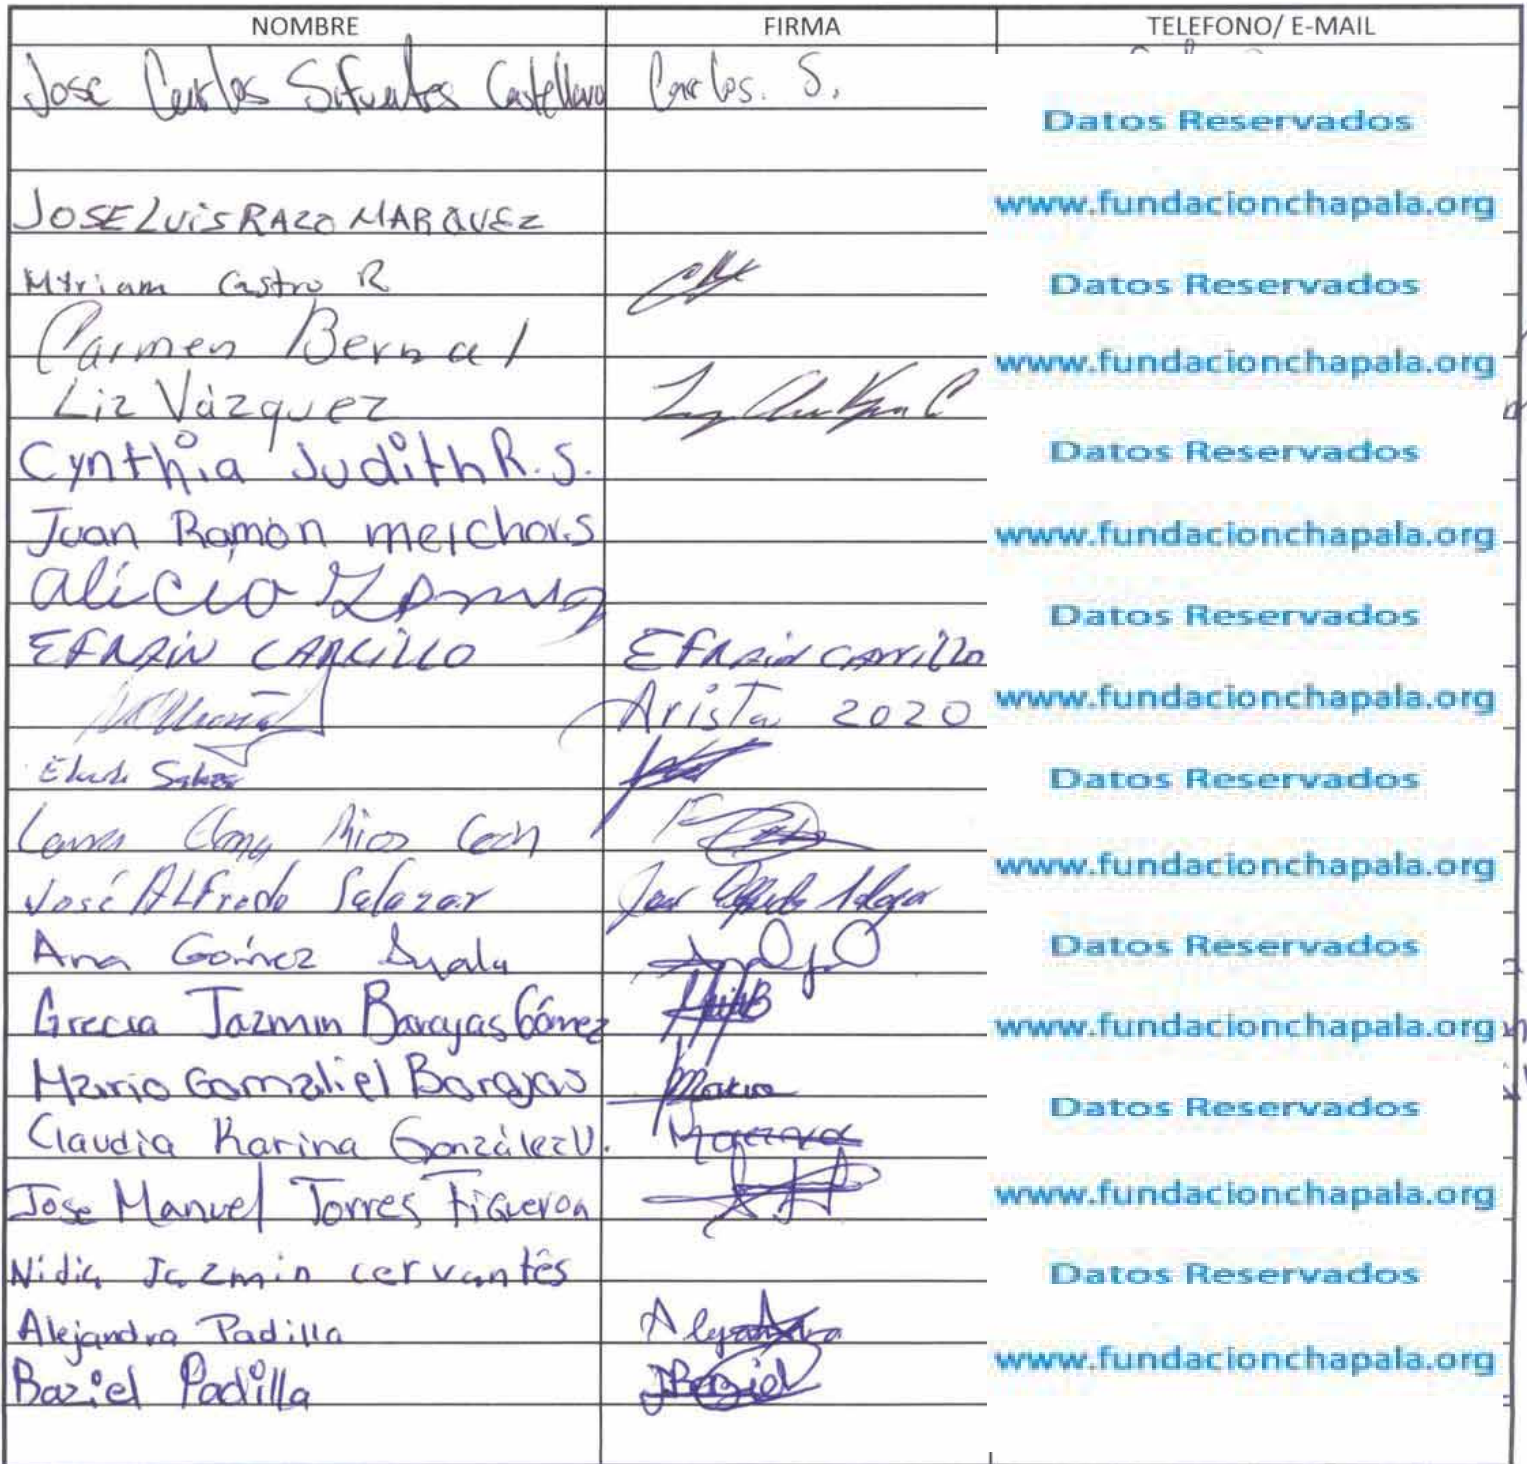 NOMBRE FIRMA TELEFONO/ E-MAIL
Jose Carlos Sifuentes Castellano Carlos. S.
Datos Reservados
JOSE LUIS RAZO MARQUEZ www.fundacionchapala.org
Myriam Castro R Datos Reservados
Carmen Bernal www.fundacionchapala.org
Liz Vázquez
Cynthia Judith R. S. Datos Reservados
Juan Ramón melchor.S www.fundacionchapala.org
alicia Datos Reservados
EFRAIN CARRILLO EFRAIN CARRILLO
Arista 2020 www.fundacionchapala.org
Datos Reservados
Rios www.fundacionchapala.org
José ALFredo Salazar Jose Alfredo Salazar
Ana Gómez Ayala Datos Reservados
Grecia Jazmin Barajas Gómez www.fundacionchapala.org
Mario Gamaliel Barajas Mario Datos Reservados
Claudia Karina González V. Karina
Jose Manuel Torres Figueroa www.fundacionchapala.org
Nidia Jazmin cervantes Datos Reservados
Alejandra Padilla Alejandra www.fundacionchapala.org
Baziel Padilla Baziel